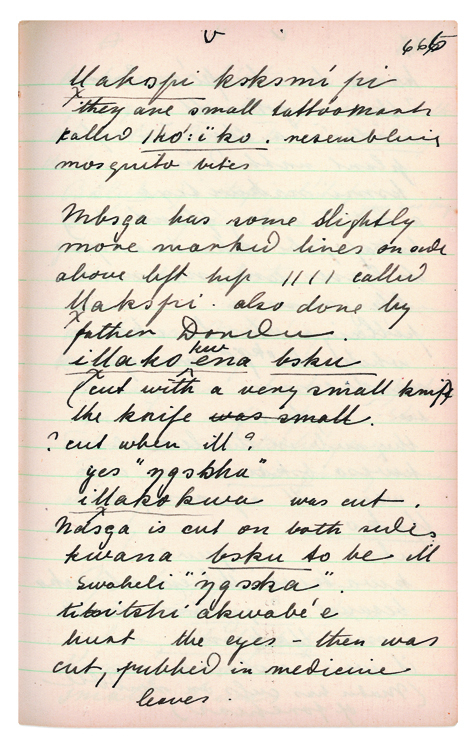 v
665
Makopi koksmi pi
they are small tattoomarks
called iko:ïko. resembling
mosquito bites
Mbsga has some slightly
more marked lines on side
above left hip //// called
Makopi. also done by
father Dondu.
illako kuv ena bsku
(cut with a very small knife
the knife was small.
? cut when ill?
yes "ngoska"
illakokwa was cut.
Nasga is cut on both sides
kwana bsku to be ill
Swaheli "ngoska".
akwabé'e
hurt the eyes - then was
cut, rubbed in medicine
leaves.